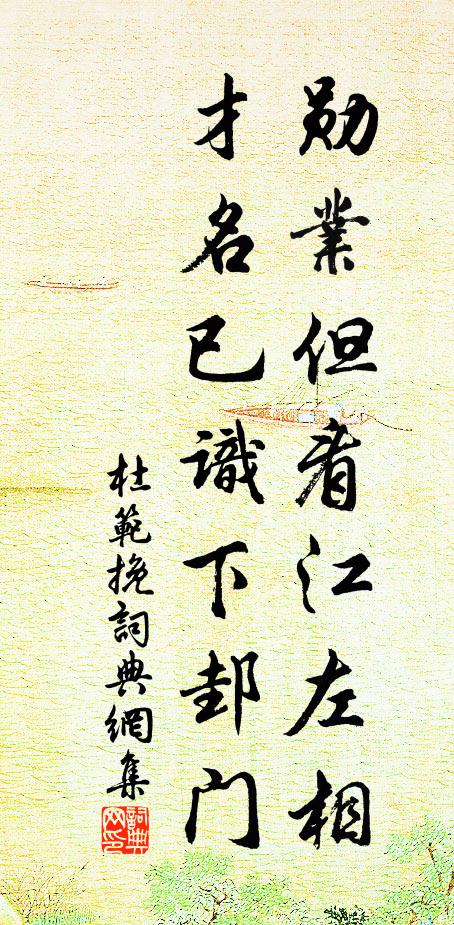 勋業但看江左相
才名已識下邽門
杜範挽詞典網集
詞典网印